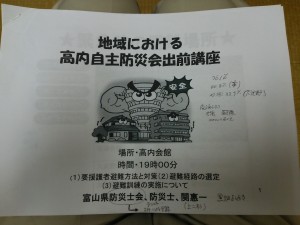 地域における
高内自主防災会出前講座
安全
場所・高内会館
時間・19時00分
(1)要援護者避難方法と対策(2)避難経路の選定
(3)避難訓練の実施について
富山県防災士会、防災士、開憲一